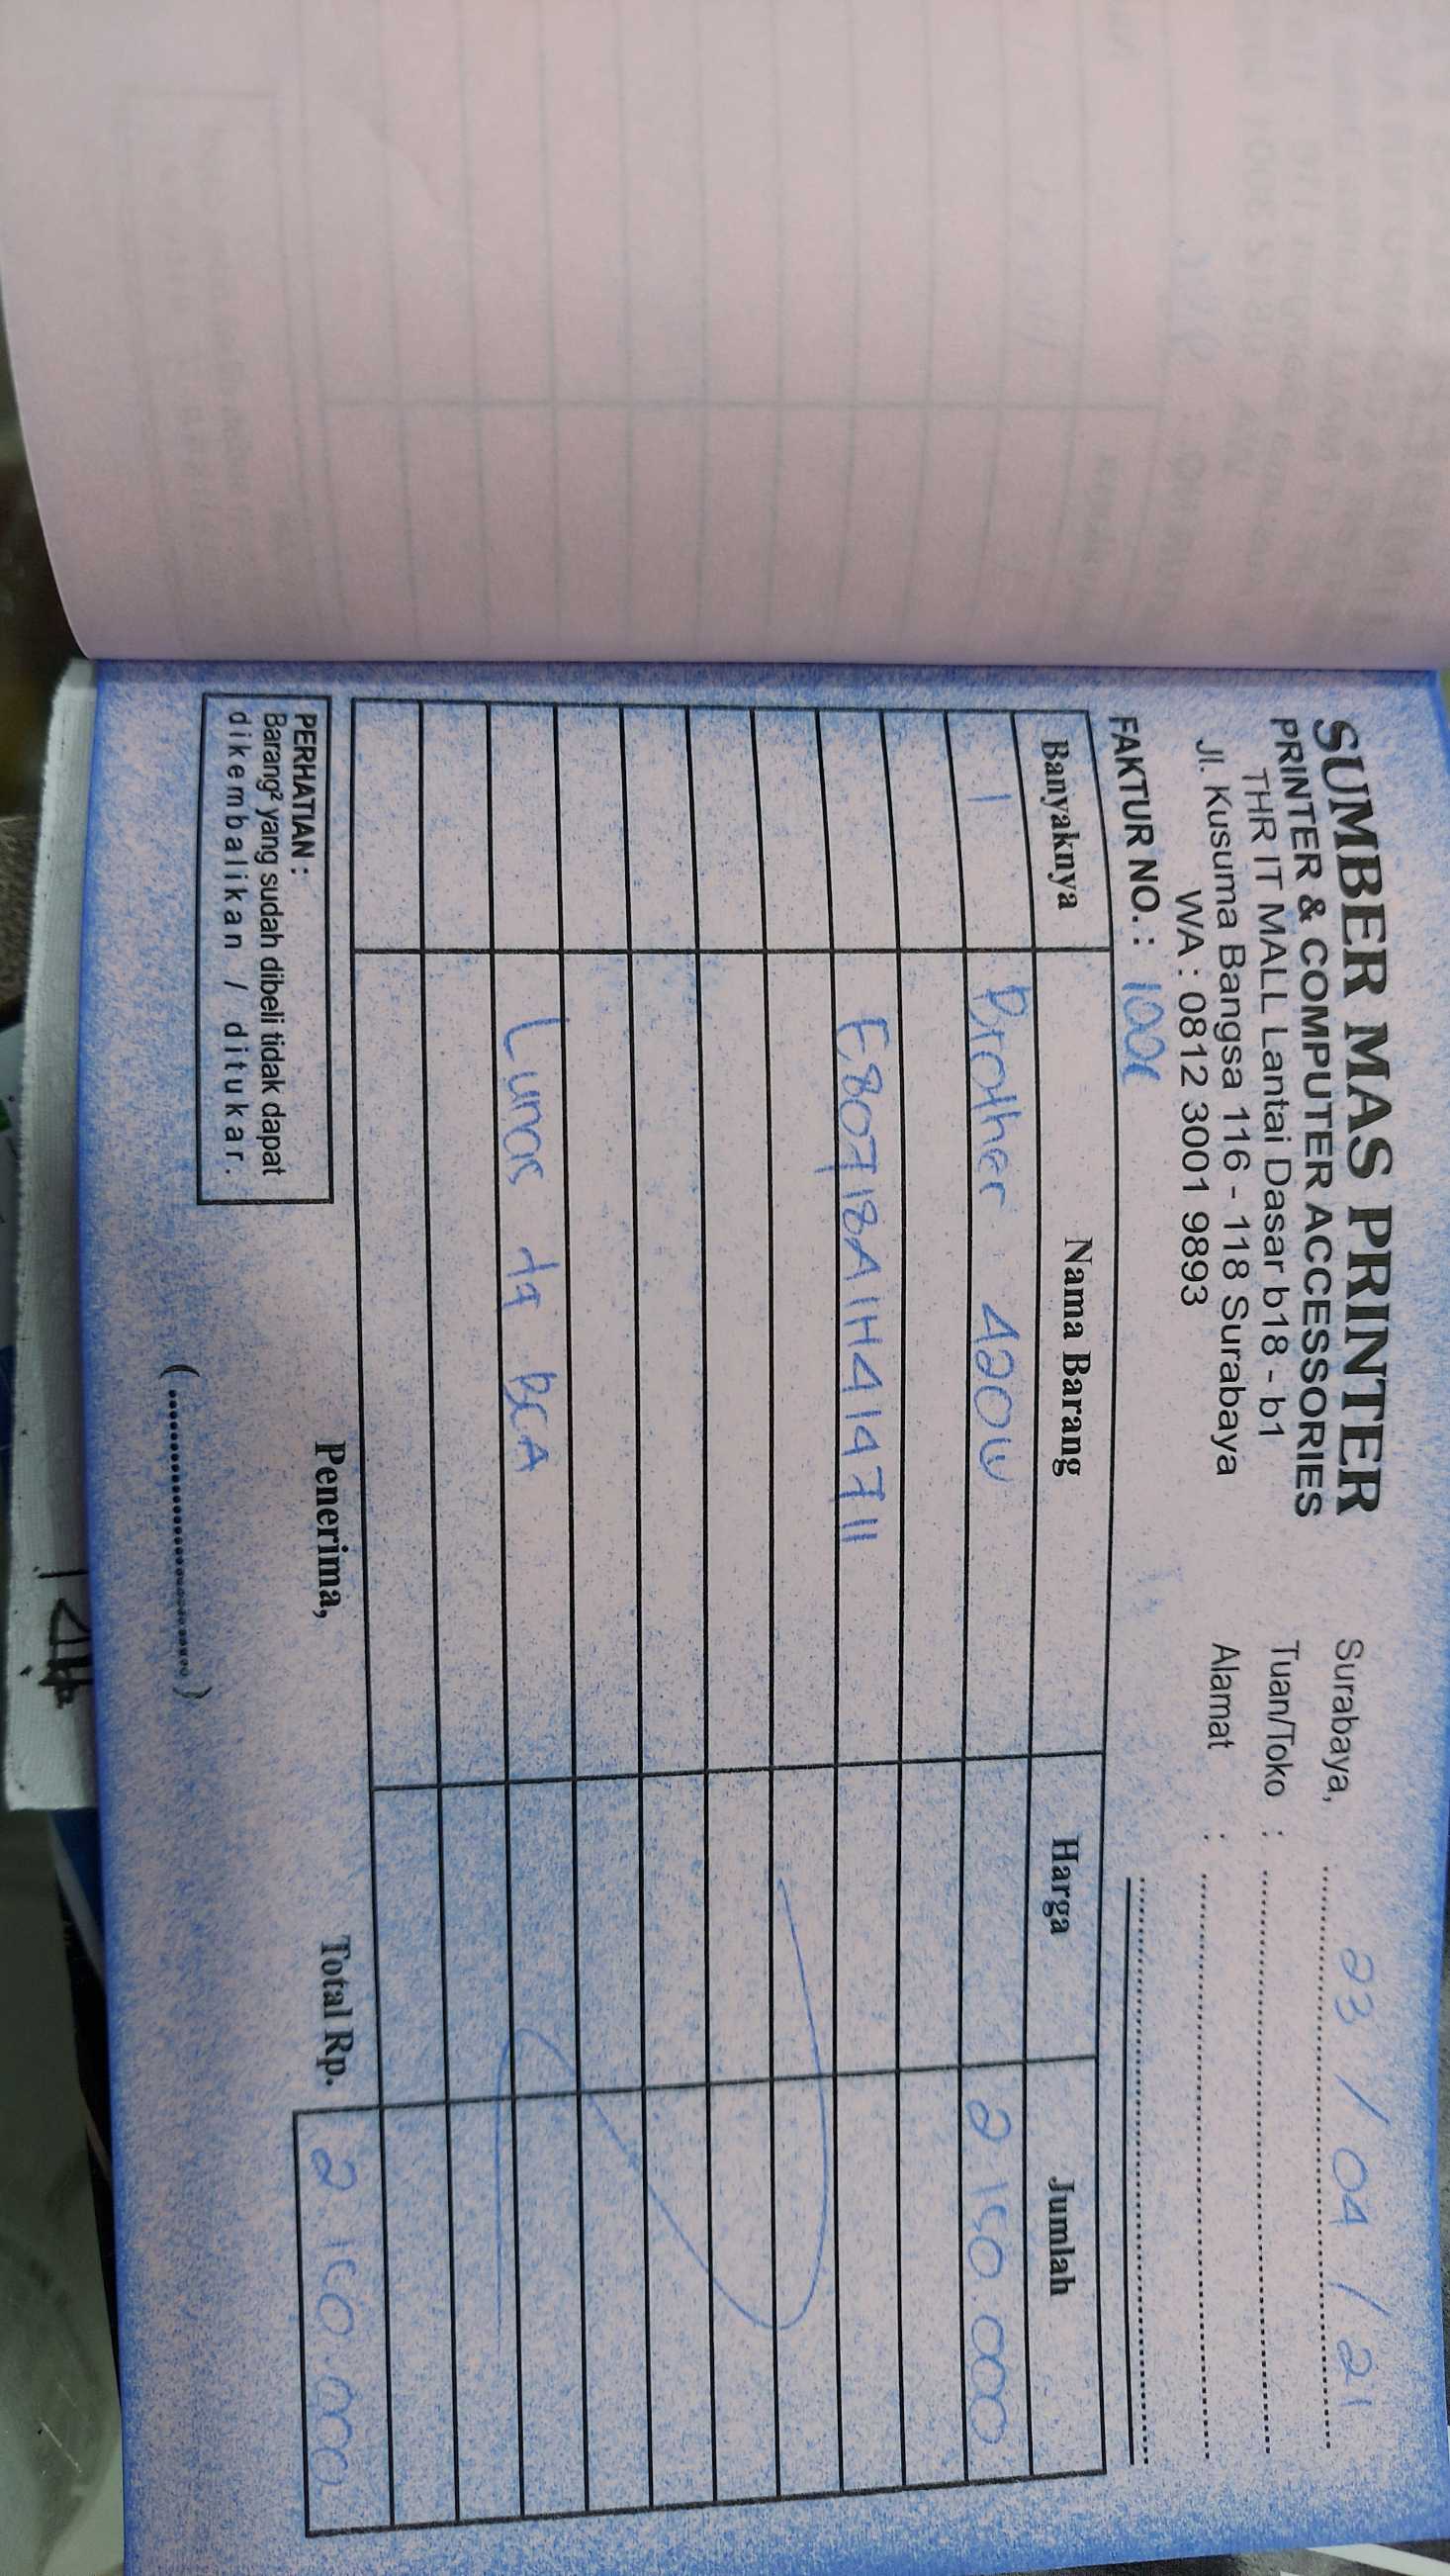 SUMBER MAS PRINTER
PRINTER & COMPUTER ACCESSORIES
THR IT MALL Lantai Dasar b18 - b1
Jl. Kusuma Bangsa 116 - 118 Surabaya
WA : 0812 3001 9893
Surabaya, 23 / 04 / 21
Tuan/Toko :
Alamat :
FAKTUR NO. :
Banyaknya Nama Barang Harga Jumlah
1 Brother 420W 2.150.000
E80718A1H414711
Lunas BCA
Total Rp. 2.150.000
PERHATIAN :
Barang² yang sudah dibeli tidak dapat
dikembalikan / ditukar.
Penerima,
(....................................)